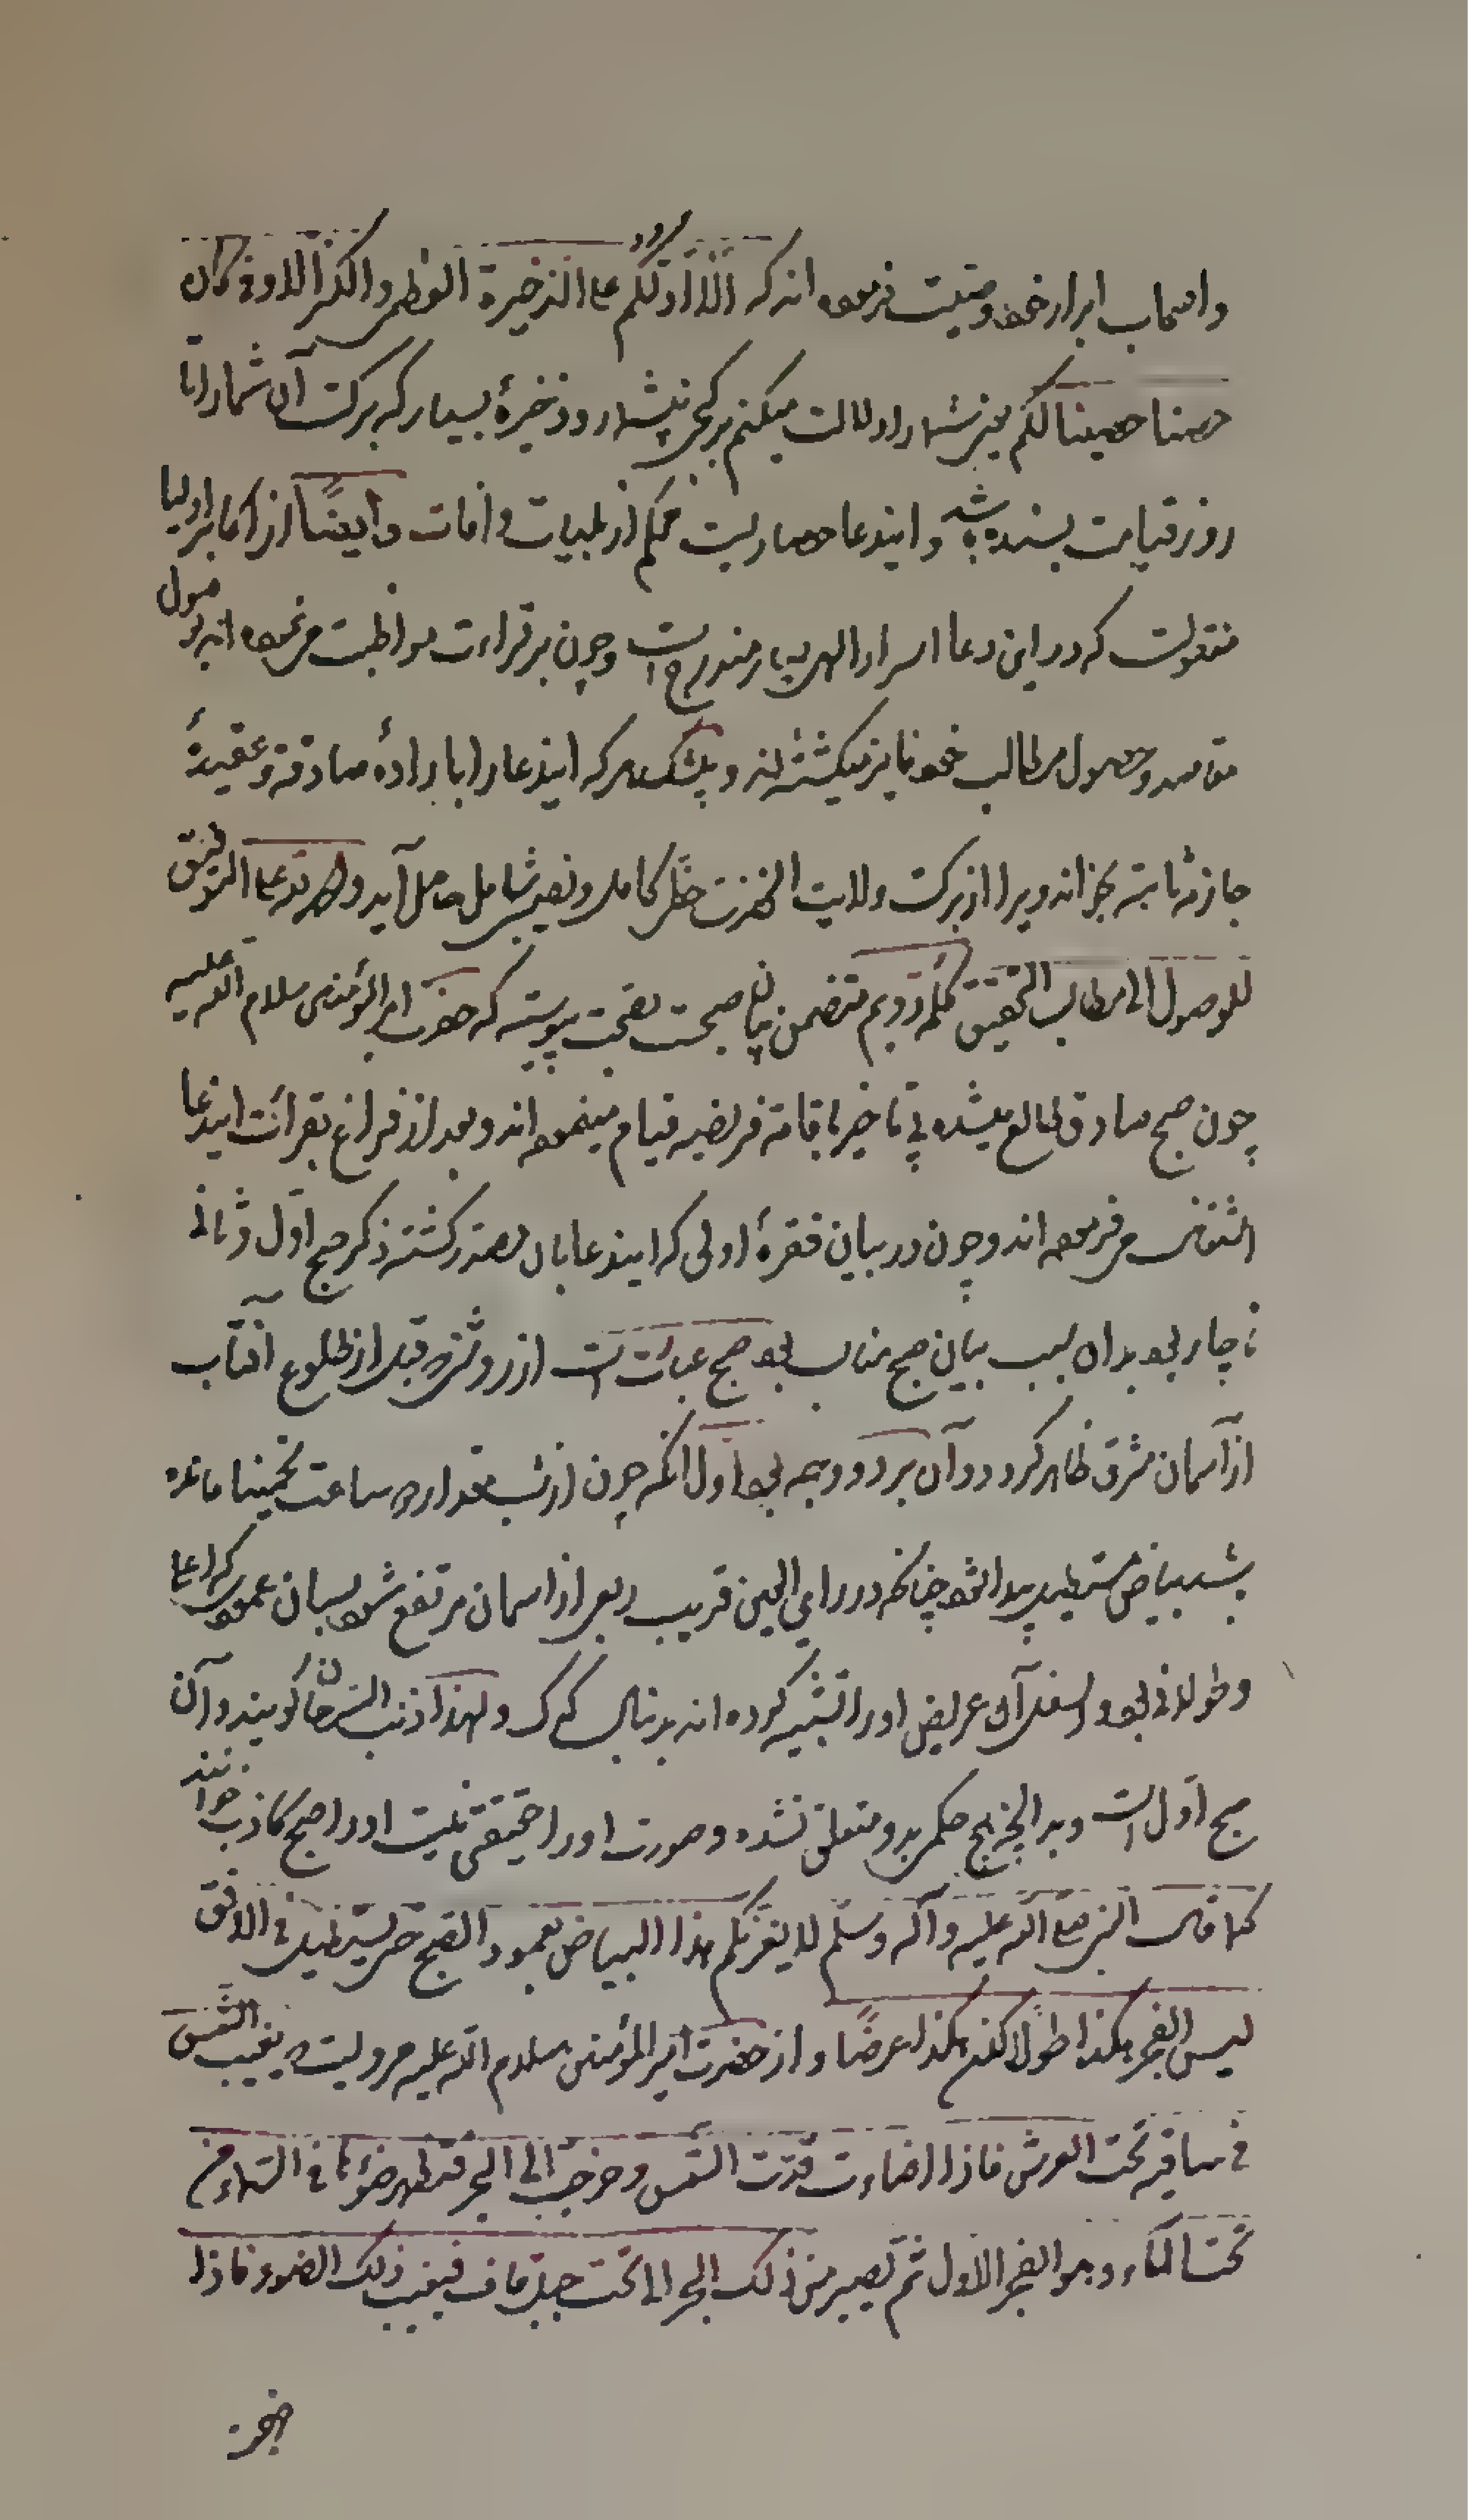 واصحاب ابرار خود وصیت فرموده اند که الا ادلکم علی الذخیرة العظمی والکنز الاوفی کان
حصنا حصینا لکم یعنی شما را دلالت میکنم بر کنجی بیشمار و ذخیرهٔ بسیار که ببرکت آن شما را تا
روز قیامت بسنده باشد و ایندعا حصاریست محکم از بلیات و افات و ایضًا از اکابر اولیا
منقولست که در این دعا اسرار الهی بسیار مندرج است و چون بر قراءت مواظبت می نموده اند بوصول
مقاصد وحصول مطالب خود فایز میکشته اند و بیشک هر که ایندعا را با ارادهٔ صادقه و عقیدهٔ
جازمهٔ ثابته بخواند ویرا از برکت ولایت انحضرت حظی کامل و نصیبی شامل حاصل آید والله ندعا التوفیق
للوصول الی مطالب التحقیق کلمهٔ دویم متضمن بیان صبحت بصحت پیوسته که حضرت امیر المؤمنین سلام الله علیه
چون صبح صادق طالع میشده بی تاخیر باقامهٔ فریضه قیام مینموده اند و بعد از فراغ بقرائت ایندعا
اشتغال می فرموده اند و چون در بیان فقرهٔ اولی که ایندعا بان مصدر کشته ذکر صبح اول و ثانی
ناچار بود بدان سبب بیان صبح مناسب بود صبح عبارت است از روشنی قبل از طلوع افتاب
از آسمان مشرق ظاهر کردد و آن بر دو وجه بود اول آنکه چون از شب مقدار ساعت تخمینا مانده
باشد بیاض مستطیل پیدا شود چنانکه در رای العین قریب ربعی از اسمان مرتفع شود بسان عمودی که اعلا
وطولانی بود و اسفل آن عریض او را تشبیه کرده اند بدنبال کرک و لهذا ذنب السرحان گویند و آن
صبح اول است و بدانجهة هیچ حکمی بدو متعلق نشده و صورت او را حقیقتی نیست او را صبح کاذب خوانند
کما قال النبی صلی الله علیه وآله وسلم لا یغرنکم هذا البیاض لعمود الصبح حتی یستطیل فی الافق
لیس الفجر هکذا طولًا لکن هکذا عرضًا و از حضرت امیر المؤمنین سلام الله علیه مرویست یغیب الشمس
فی ساقیه تحت العرش فاذا اضاءت قدّت الشمس و خرجت الی البحر قد ظهر ضؤها فی السماء من
تحت الماء و هو الفجر الاول ثم تصیر من ذلک البحر الی تحت جبل قاف فیغیب ذلک الضوء فاذا